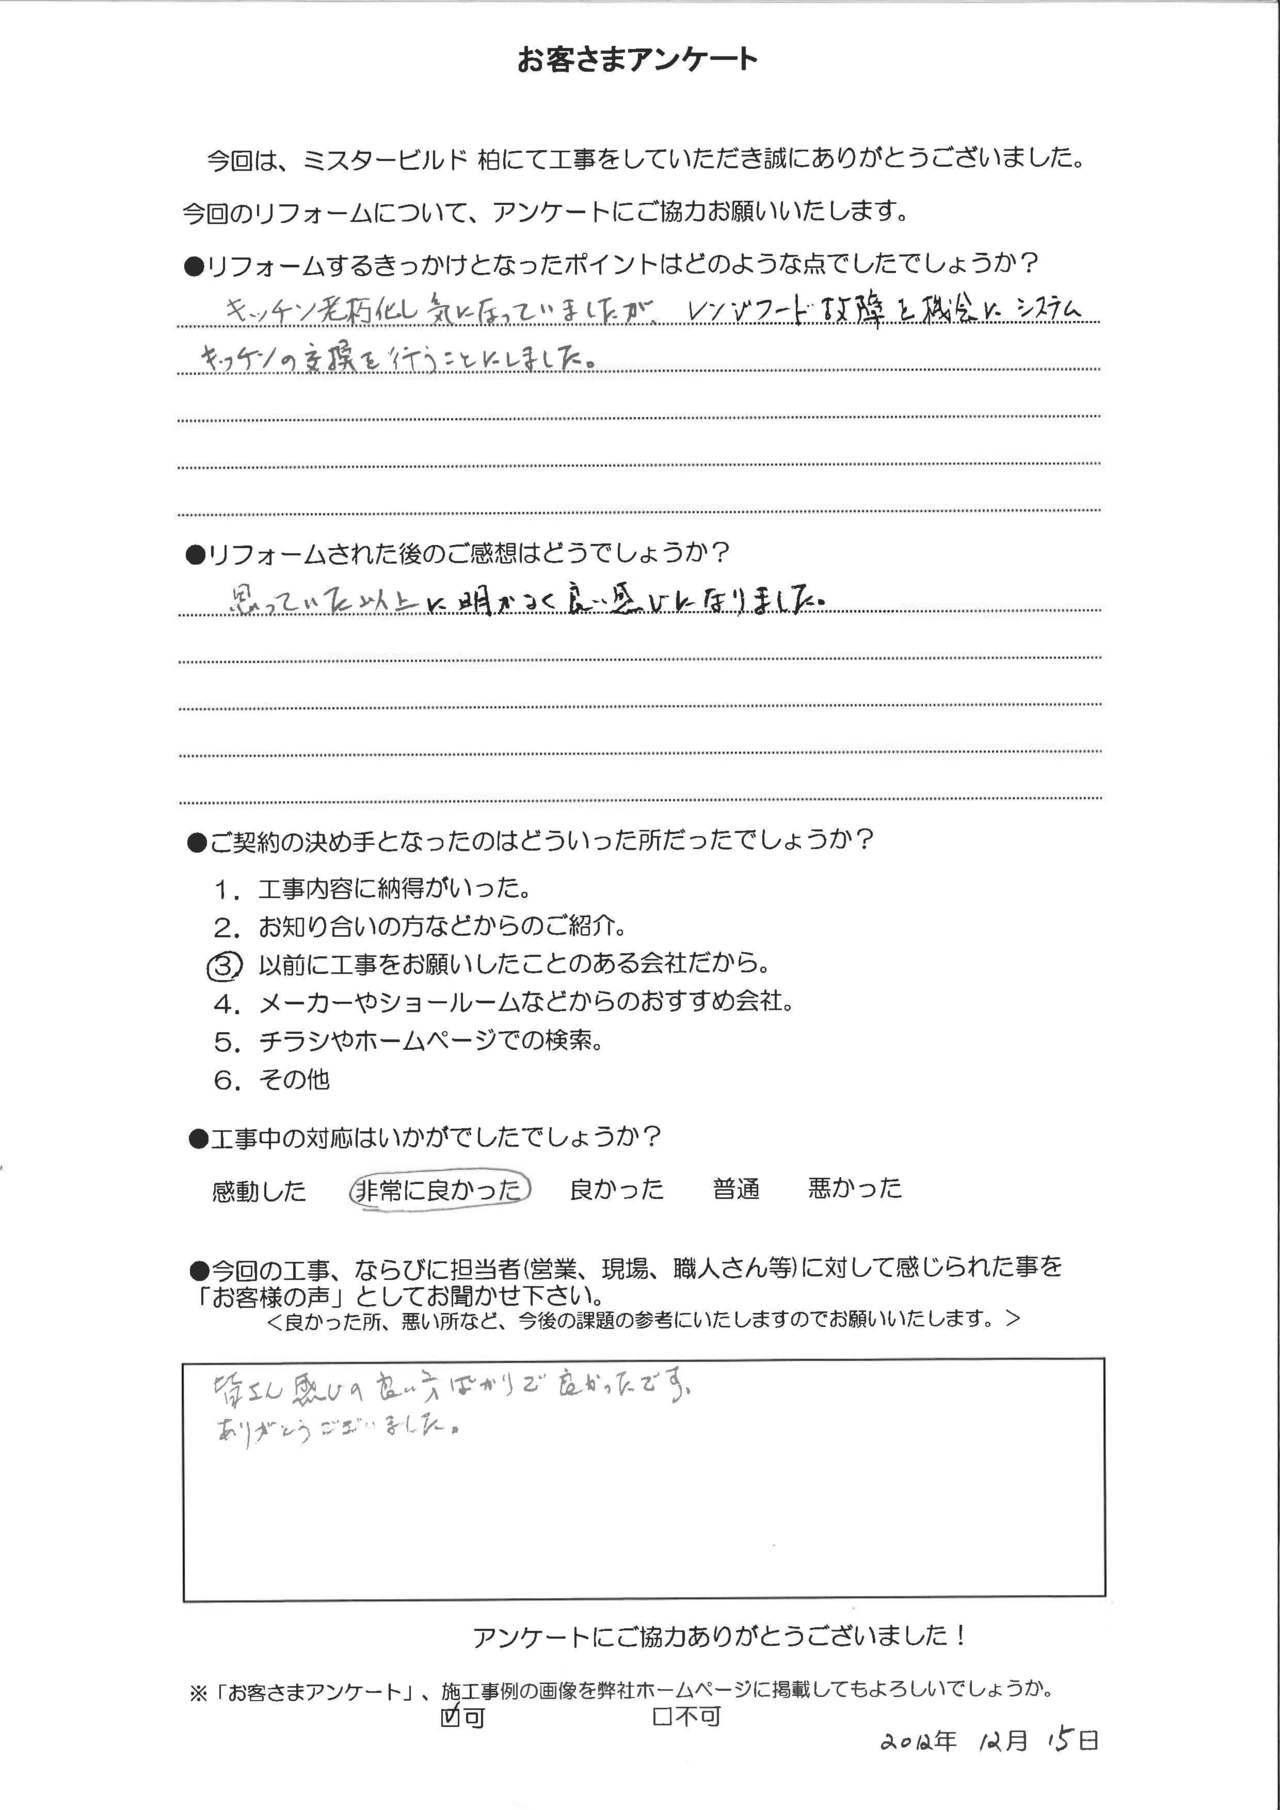 お客さまアンケート
今回は、ミスタービルド 柏にて工事をしていただき誠にありがとうございました。
今回のリフォームについて、アンケートにご協力お願いいたします。
●リフォームするきっかけとなったポイントはどのような点でしたでしょうか？
キッチン老朽化し気になっていましたが、レンジフード故障を機会にシステム
キッチンの交換を行うことにしました。
●リフォームされた後のご感想はどうでしょうか？
思っていた以上に明かるく良い感じになりました。
●ご契約の決め手となったのはどういった所だったでしょうか？
１．工事内容に納得がいった。
２．お知り合いの方などからのご紹介。
③ 以前に工事をお願いしたことのある会社だから。
４．メーカーやショールームなどからのおすすめ会社。
５．チラシやホームページでの検索。
６．その他
●工事中の対応はいかがでしたでしょうか？
感動した 非常に良かった 良かった 普通 悪かった
●今回の工事、ならびに担当者(営業、現場、職人さん等)に対して感じられた事を
「お客様の声」としてお聞かせ下さい。
＜良かった所、悪い所など、今後の課題の参考にいたしますのでお願いいたします。＞
皆さん感じの良い方ばかりで良かったです。
ありがとうございました。
アンケートにご協力ありがとうございました！
※「お客さまアンケート」、施工事例の画像を弊社ホームページに掲載してもよろしいでしょうか。
☑可 □不可
2012年 12月 15日